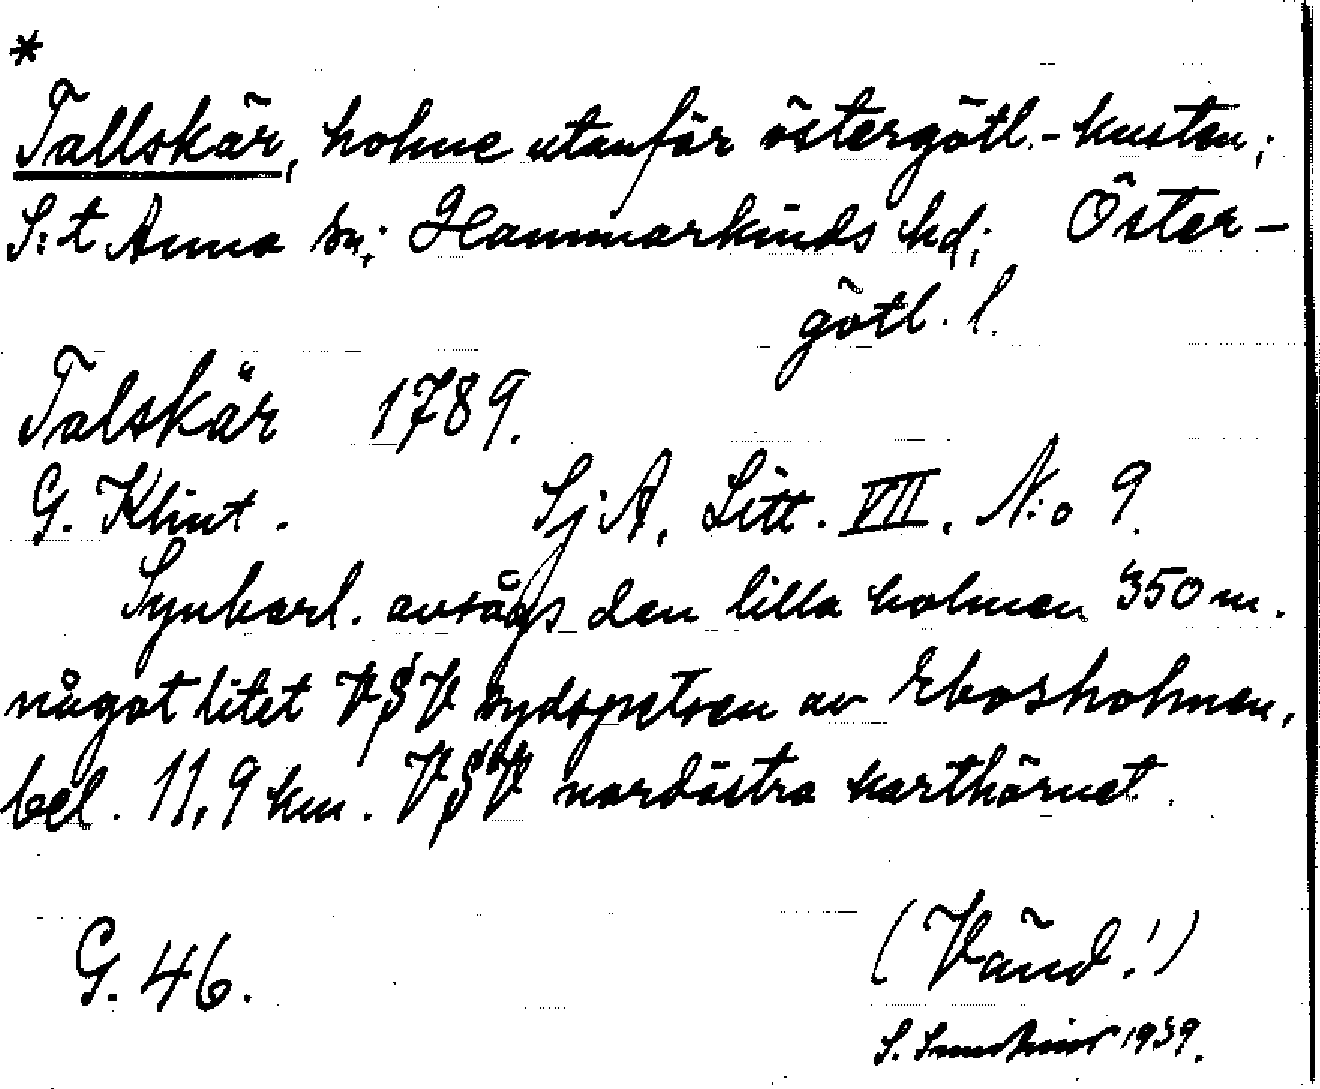 *
Tallskär, holme utanför östergötl.-kusten;
S:t Anna sn; Hammarkinds hd; Öster-
götl. l.
Talskär 1789.
G. Klint. SjA, Litt. VII, N:o 9.
Synbarl. avsågs den lilla holmen 350 m.
något litet VSV sydspetsen av Ebosholmen,
bel. 11,9 km. VSV nordöstra karthörnet.
G. 46. (Vänd!)
S. 1939.